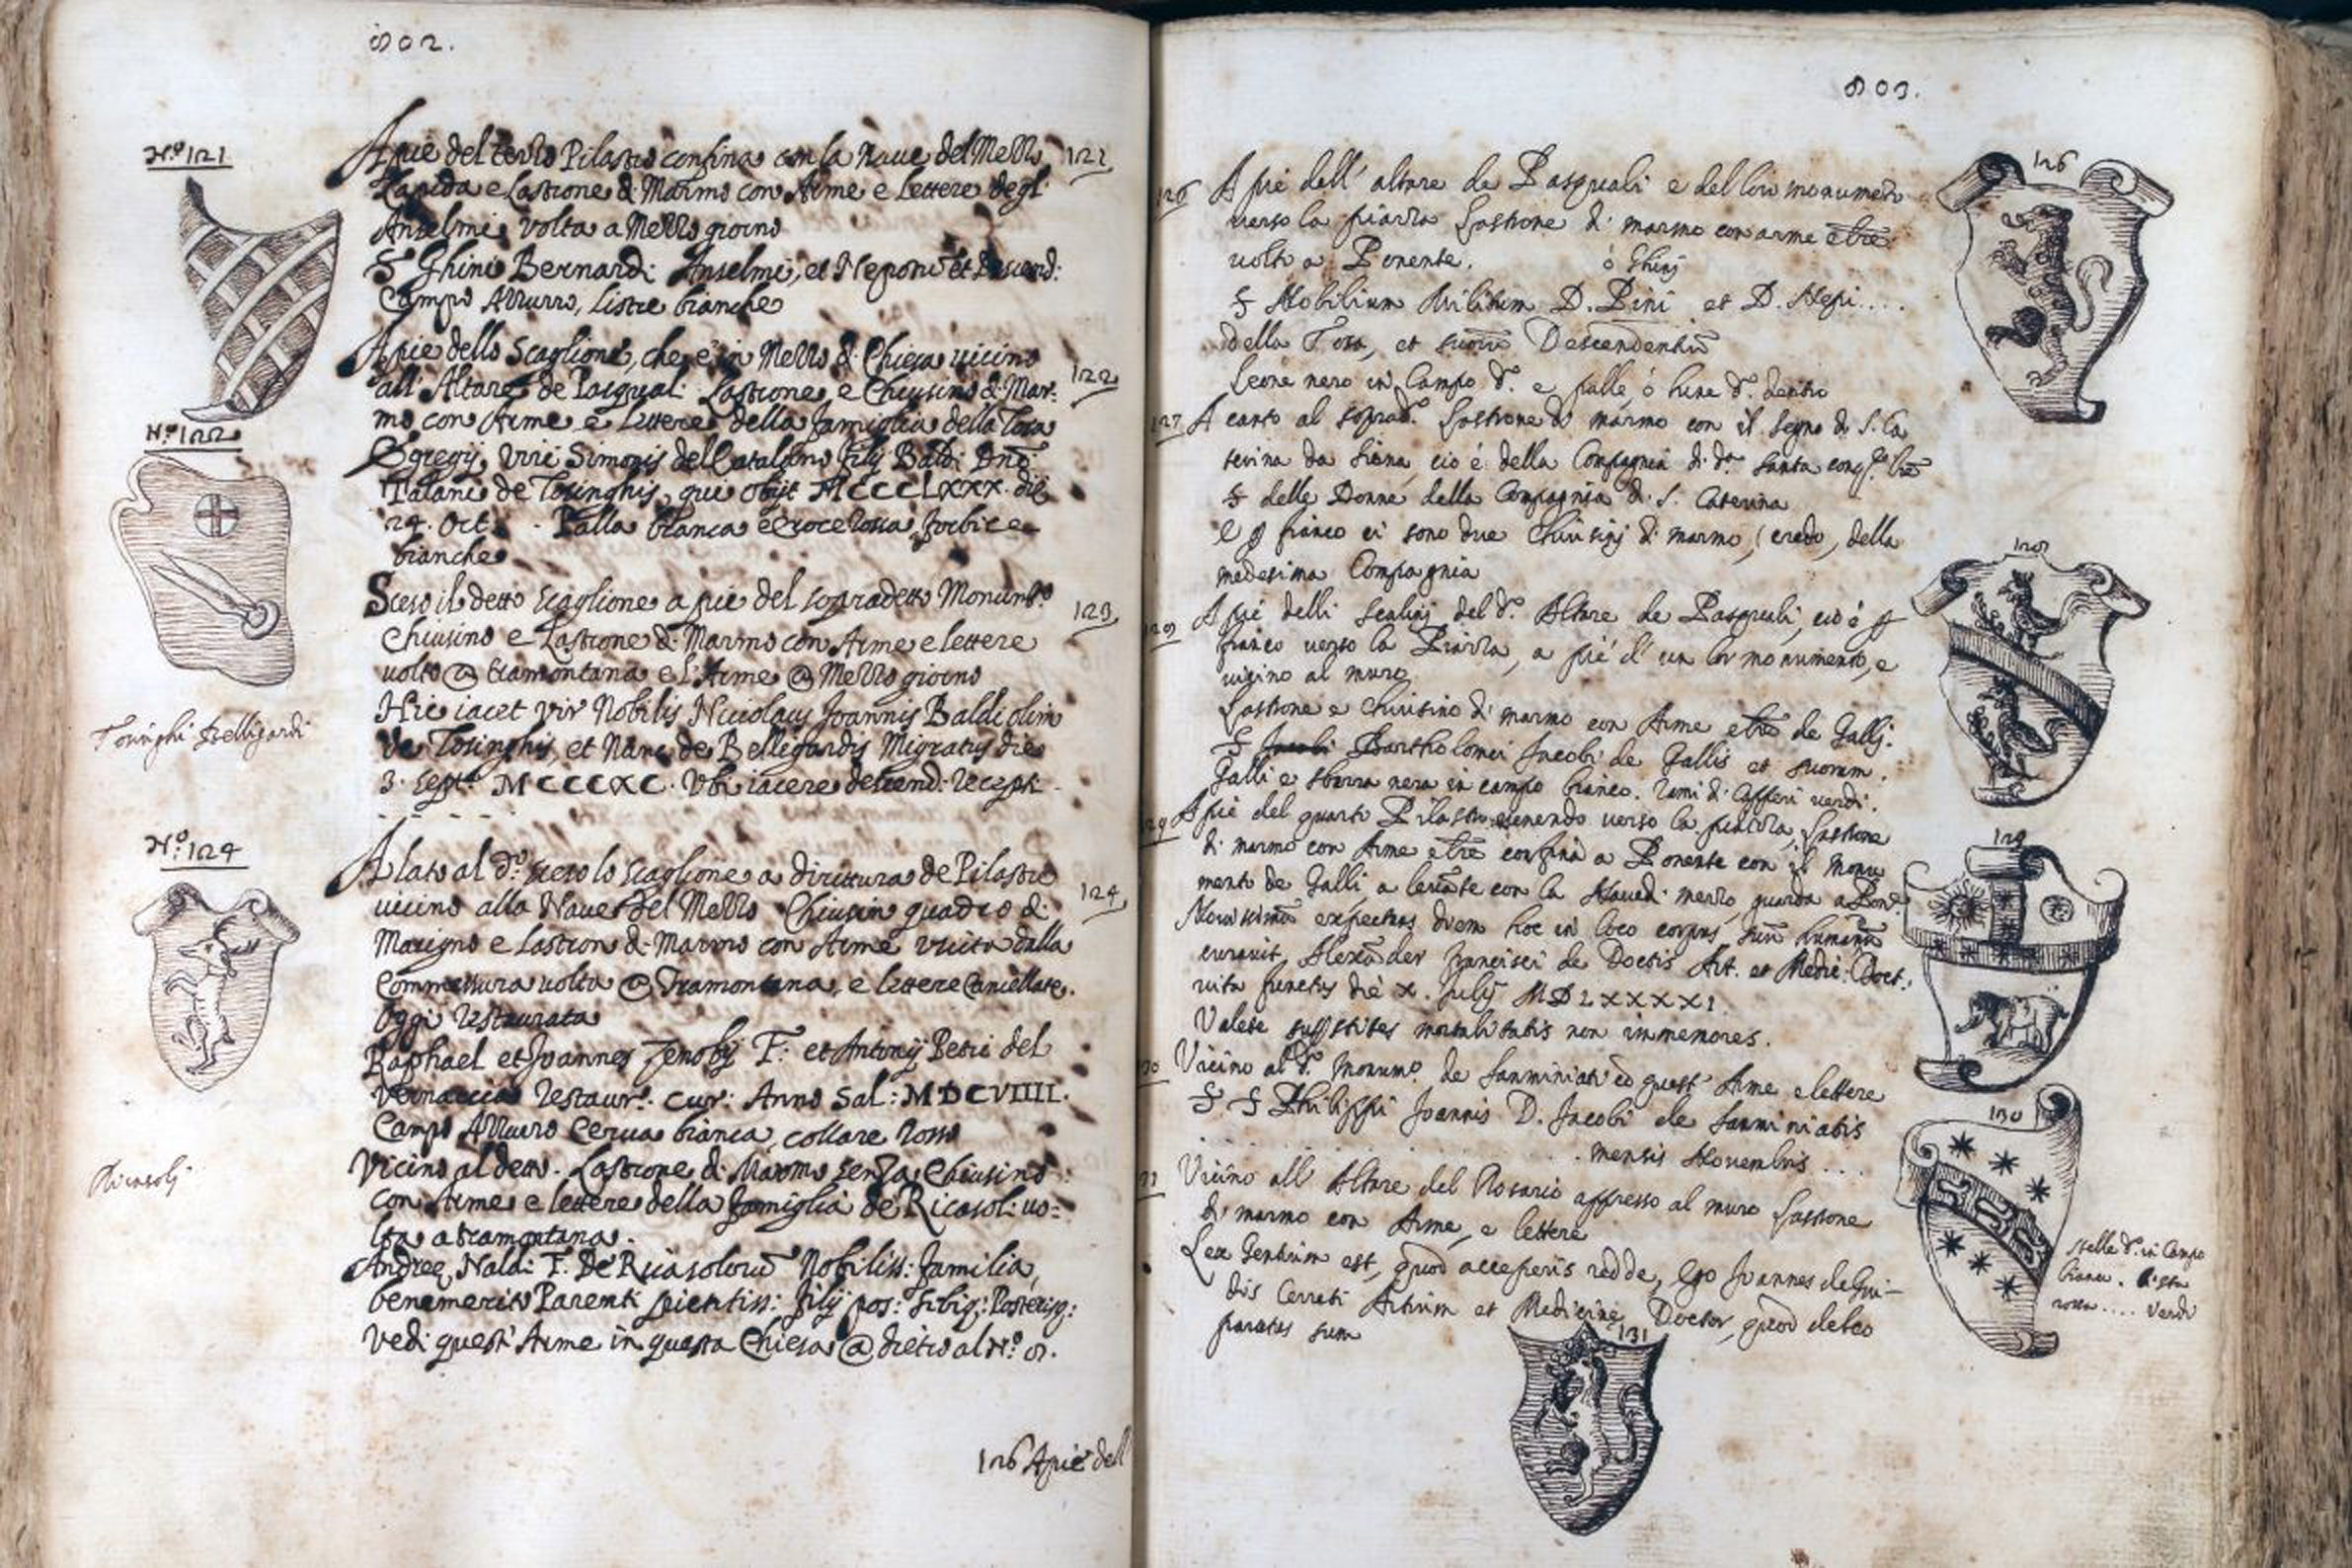 802.
Nº 121
A pie del terzo Pilastro confina con la Naue del Mezzo 121
Lapida e Lastrone di Marmo con Arme e lettere degl'
Anselmi, volta a Mezzo giorno
S Ghini Bernardi Anselmi, et Nepoti et Descend:
Campo Azzurro, listre bianche
Nº 122
A pie dello Scaglione, che è in Mezzo di Chiesa uicino 122
all' Altare de Pasquali Lastrone e Chiusino di Mar:
mo con Arme e lettere della famiglia della Tosa
Egregij Viri Simonis del Catalano filij Baldi Dnẽ
Talani de Tosinghis, qui obijt MCCCLXXX. die
24. Oct. . Palla bianca e Croce rossa, forbice
bianche
Sceso il detto Scaglione a pie del sopradetto Monumto 123
Chiusino e Lastrone di Marmo con Arme e lettere
uolto @ tramontana e l'Arme @ Mezzo giorno
Hic iacet vir Nobilis Niccolaus Joannis Baldi olim
Tosinghi Belligardi
de Tosinghis, et Nunc de Bellegardis Migratus die
3. Septe MCCCXC. Vbi iacere descend:
Nº 124
A lato al do. sceso lo Scaglione a dirittura de Pilastri
uicino alla Naue del Mezzo Chiusin quadro di 124
Macigno e Lastron di Marmo con Arme uscita dalla
Commettura uolta @ Tramontana, e lettere Cancellate.
Oggi restaurata
Raphael et Joannes Zenobij F: et Antonij Petri del
Vernaccia restaur. cur: Anno Sal: MDCVIIII.
Campo Azzurro Cerua bianca, collare rosso
Ricasolj
Vicino al detto. Lastrone di Marmo senza Chiusino
con Arme e lettere della famiglia de Ricasoli uo=
lta a tramontana.
Andreę Naldi F. De Ricasolorũ Nobiliss: familia,
benemerito Parenti pientiss: filij pos: sibiq: Posterisq:
Vedi quest' Arme in questa Chiesa @ dietro al Nº 8.
126 A pie dell
803.
126 A pié dell' altare de Pasquali e del loro monumento 126
verso la piazza Lastrone di marmo con arme e lre
uolto a Ponente. ò Ghinj
S Nobilium Militum D. Pini et D. Nepi....
della Tosa, et suorũ Descendentiũ
Leone nero in Campo do. e palle, ò lune do. dentro
127 A canto al soprado. Lastrone di marmo con il segno di S. Ca
terina da Siena, cio é della Compagnia di da. Santa
S delle Donne della Compagnia di S. Caterina
e p fianco ci sono due Chiusinj di marmo, credo, della
medesima Compagnia
128 A pié delli scalinj del do. Altare de Pasquali, cio é p 128
fianco uerso la Piazza, a pié d' un lor monumento, e
uicino al muro
Lastrone e Chiusino di marmo con Arme e lre de Gallj.
S Bartholomei Jacobi de Gallis et suorum.
Galli e sbarra nera in campo bianco. rami di Capperi verdi.
129 A pié del quarto Pilastro uenendo uerso la piazza, Lastrone 129
di marmo con Arme e lre confina a Ponente con il monu
mento de Galli, a leuãte con la Naue di mezzo, guarda a Pone.
Nouissimũ expectans diem hoc in loco corpus suũ humandũ
curauit, Alexãder Francisci de Doctis Art. et Medic: Doct.
uita functus die X. Julij MDLXXXXI.
Valete supstites mortalitatis non immemores.
130 Vicino al do. Monumo. de Sanminiati cò quest' Arme e lettere 130
S S Philippi Joannis D. Jacobi de Sanminiatis
. . . . . . . mensis Nouembris . . .
131 Vicino all' Altare del Rosario appresso al muro Lastrone
di marmo con Arme, e lettere
Lex Gentium est, quod acceperis redde, Ego Joannes de Gui-
dis Cerreti Artium et Medicinę Doctor, quod debeo
paratus sum
Stelle do. in Campo
bianco. Lista
rossa .... Verdi
131